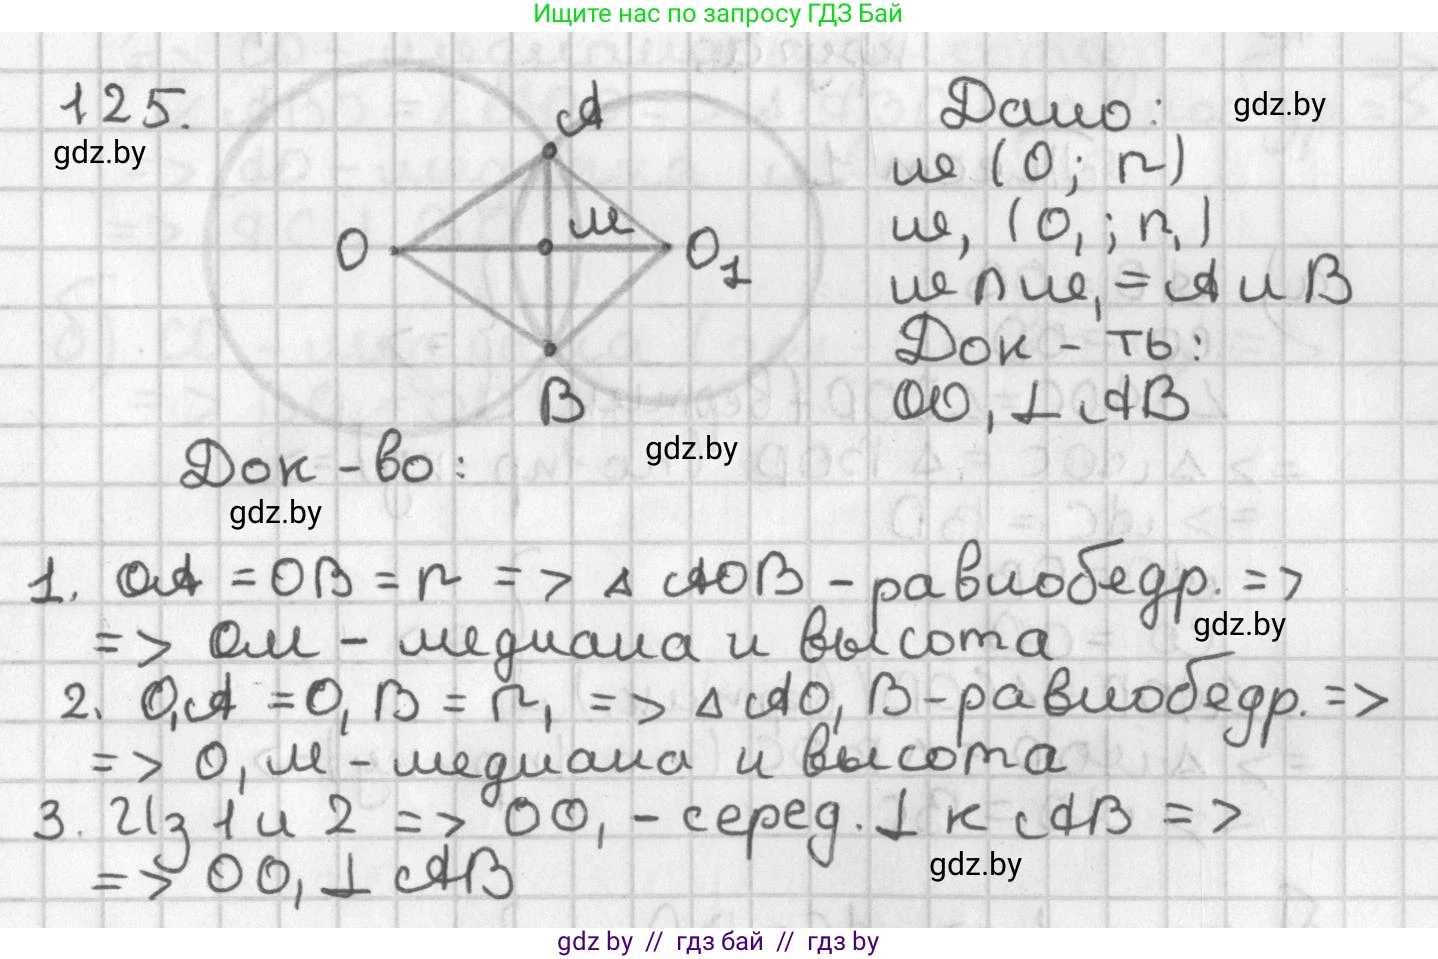 Ищите нас по запросу ГДЗ Бай
125.
gdz.by
A
O
M
O₁
B
Дано:
gdz.by
ω (O; r)
ω₁ (O₁; r₁)
ω ∩ ω₁ = A и B
Док-ть:
OO₁ ⊥ AB
gdz.by
Док-во:
gdz.by
1. OA = OB = r => △ AOB - равнобедр. =>
=> OM - медиана и высота
gdz.by
2. O₁A = O₁B = r₁ => △ AO₁B - равнобедр. =>
=> O₁M - медиана и высота
3. Из 1 и 2 => OO₁ - серед. ⊥ к AB =>
gdz.by
=> OO₁ ⊥ AB
gdz by // гдз бай // гдз by